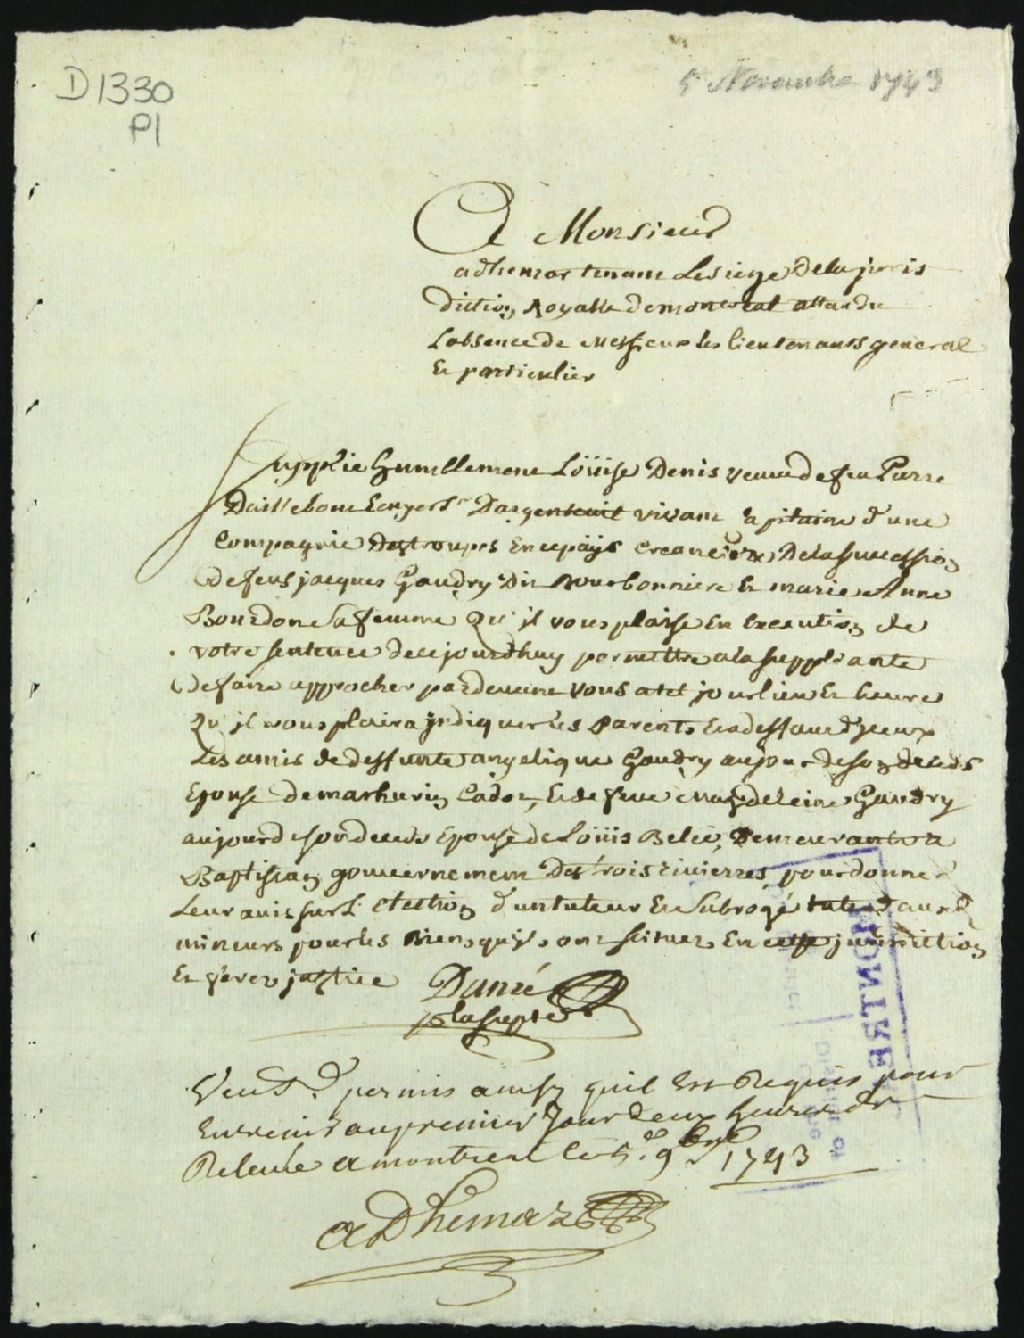 D1330
P1
5 Novembre 1743
A Monsieur
adhemar tenant Le siege de la juris
diction Royalle de montreal attendu
Labsence de Messieurs les lieutenants general
Et particulier
Supplie humblement Loüise Denis veuve de feu Pierre
Daillebout Ecuyer Sr Dargenteuil vivant Capitaine d'une
Compagnie des troupes En ce païs Creanciere De la succession
de feus jacques Gaudry dit Bourbonniere Et marie Anne
Bourdon sa femme Qu'il vous plaise En Execution de
votre sentence de ce jourdhuy permettre a la suppliante
de faire approcher pardevant vous a tel jour lieu Et heure
Qu'il vous plaira jndiquer les Parents Et a deffaut d'jceux
Les amis de deffunte angelique Gaudry au jour de son deceds
Epouse de mathurin Cadot, Et de feue Magdeleine Gaudry
au jour de son deceds Epouse de Loüis Belée, Demeurants a
Baptiscan gouvernement Des trois rivieres, pour donner
Leur avis sur L'Election d'un tuteur Et subrogé tuteur aux
mineurs pour les Biens qu'jls ont scituez En cette jurisdiction
Et ferez justice Danré
p la supte
Veu permis ainsy quil Est Requis pour
En venir au premier Jour deux heures de
Relevée a montreal le 5e 9bre 1743
Adhemar
MONTRE